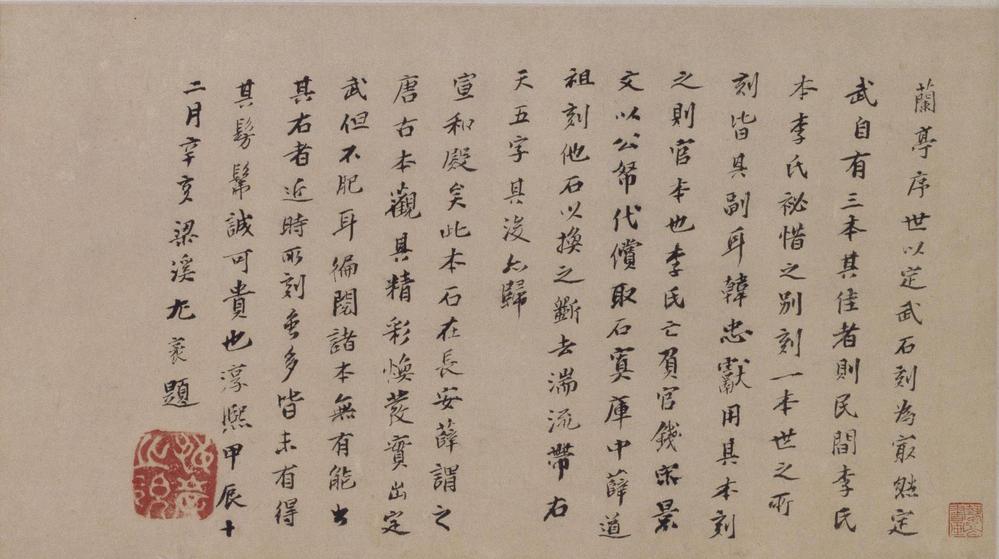 蘭亭序世以定武石刻為寂然定
武自有三本其佳者則民間李氏
本李氏祕惜之別刻一本世之所
刻皆其副耳韓忠獻用其本刻
之則官本也李氏亡負官錢宋景
文以公帑代償取石寘庫中薛道
祖刻他石以換之斷去湍流帶右
天五字其後亦歸
宣和殿矣此本石在長安薛謂之
唐古本觀其精彩煥發實出定
武但不肥耳徧閱諸本無有能出
其右者近時所刻尤多皆未有得
其髣髴誠可貴也淳熙甲辰十
二月辛亥梁溪尤袤題